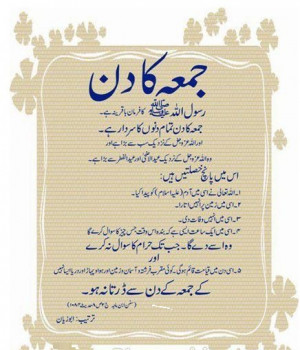 جمعہ کا دن
رسول اللہ ﷺ کا فرمان باقرینہ ہے۔
جمعہ کا دن تمام دنوں کا سردار ہے۔
اور اللہ عزوجل کے نزدیک سب سے بڑا ہے اور
وہ اللہ عزوجل کے نزدیک عید الاضحیٰ اور عید الفطر سے بڑا ہے۔
اس میں پانچ خصلتیں ہیں:
۱۔ اللہ تعالیٰ نے اسی میں آدم (علیہ السلام) کو پیدا کیا۔
۲۔ اسی میں زمین پر انہیں اتارا۔
۳۔ اسی میں انہیں وفات دی۔
۴۔ اسی میں ایک ساعت ایسی ہے کہ بندہ اس وقت جس چیز کا سوال کرے گا
وہ اسے دے گا۔ جب تک حرام کا سوال نہ کرے
اور
۵۔ اسی دن میں قیامت قائم ہوگی۔ کوئی مقرب فرشتہ و آسمان و زمین اور ہوا و پہاڑ اور دریا ایسا نہیں
کے جمعہ کے دن سے ڈرتا نہ ہو۔
(سنن ابن ماجہ
ترتیب: ابو ذیان